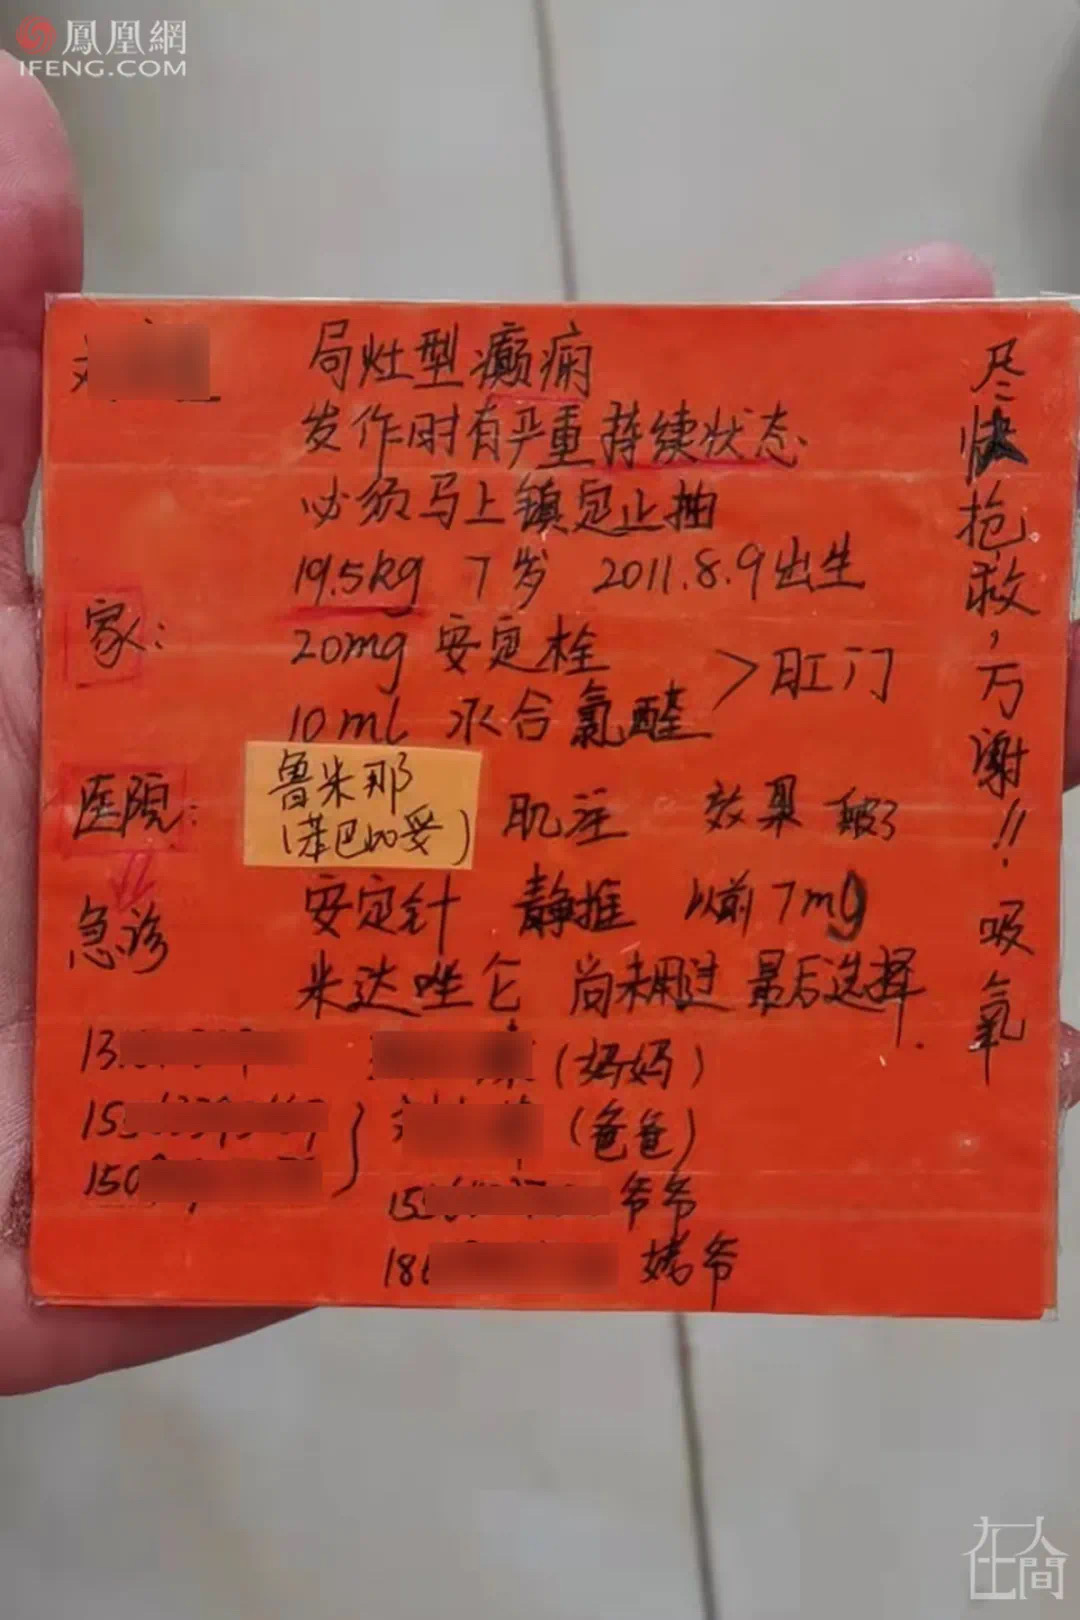 鳳凰網
IFENG.COM
局灶型癫痫
发作时有严重持续状态
必须马上镇定止抽
19.5kg 7岁 2011.8.9出生
家：
20mg 安定栓
10ml 水合氯醛 > 肛门
医院：
鲁米那
(苯巴比妥)
肌注 效果
急诊
安定针 静推 以前7mg
米达唑仑 尚未用过 最后选择.
13
(妈妈)
15
(爸爸)
150
15 爷爷
18 姥爷
尽快抢救，万谢!!. 吸氧
在人間